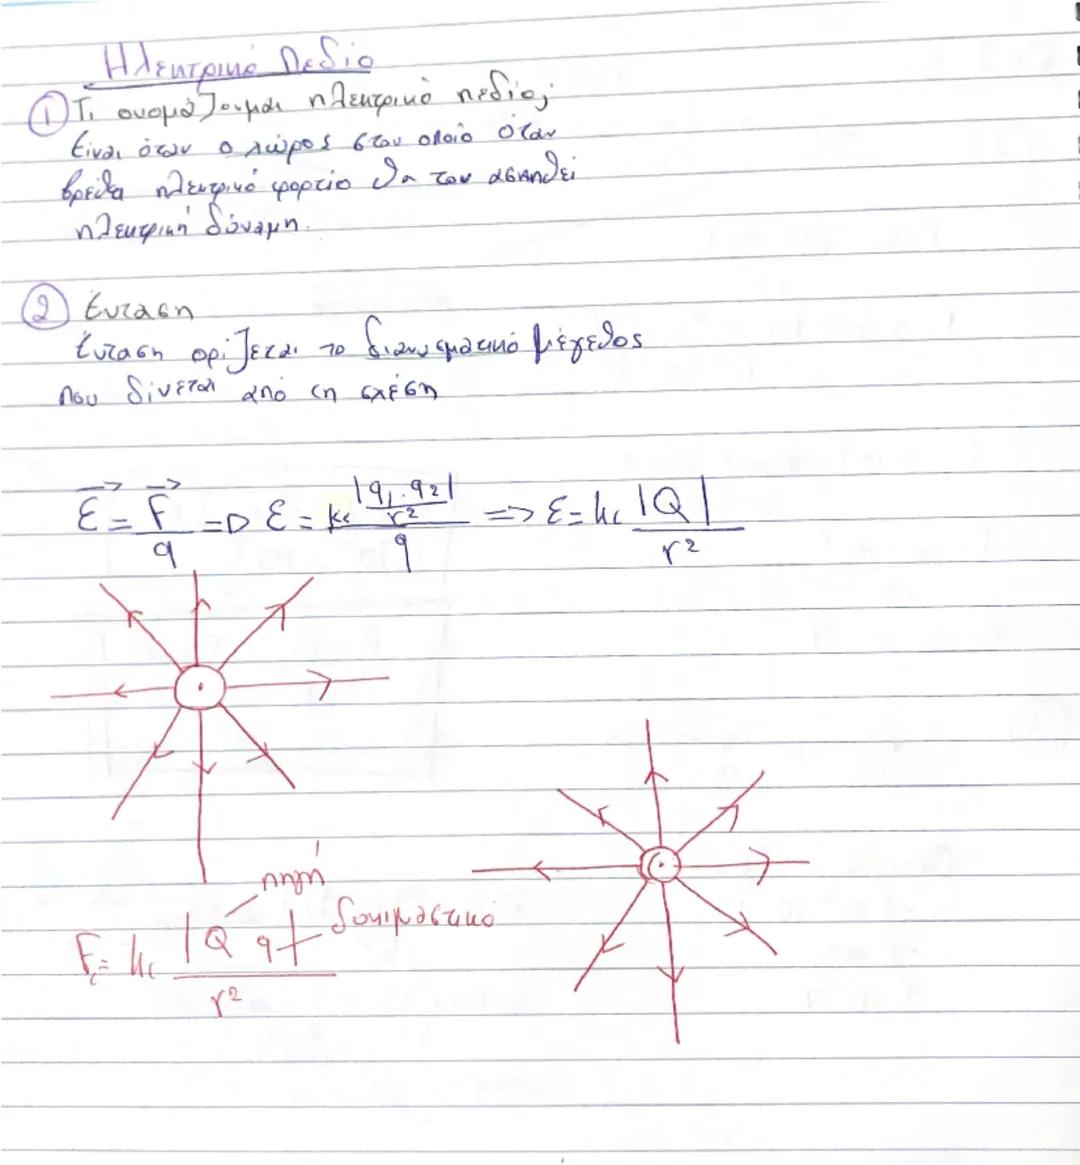 Ηλεκτρικό Πεδίο
① Τι ονομάζουμαι ηλεκτρικό πεδίο;
Είναι όταν ο χώρος στον οποίο όταν
βρεθεί ηλεκτρικό φορτίο θα του ασκηθεί
ηλεκτρική δύναμη.
② Ένταση
Ένταση ορίζεται το διανυσματικό μέγεθος
που δίνεται από τη σχέση
E⃗ = F⃗/q => E = kc |q1·q2|/r² / q => E = kc |Q|/r²
πηγή
Fc = kc |Q q|/r² δοκιμαστικό